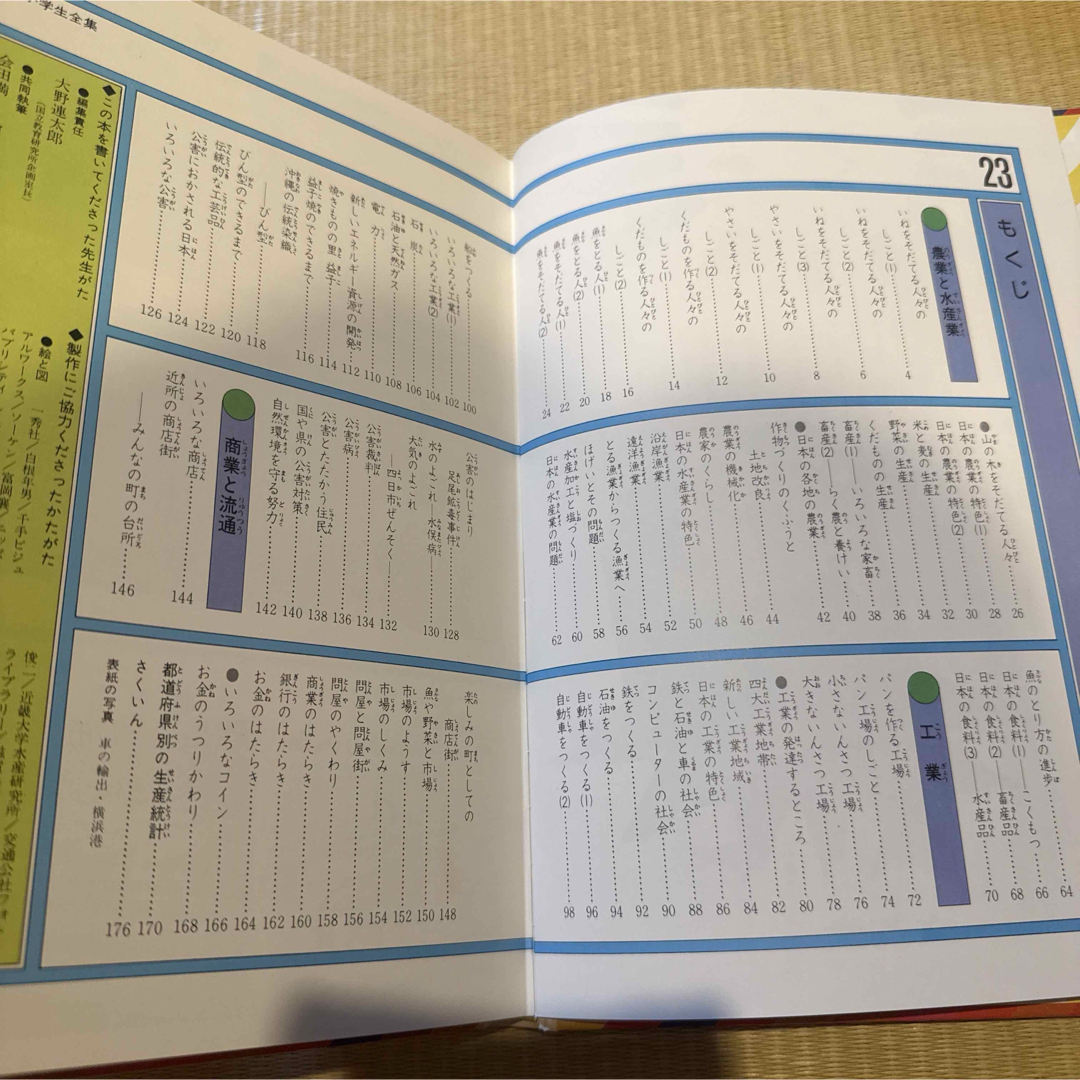 23
もくじ
農業と水産業
いねをそだてる人々の
しごと(1)……4
いねをそだてる人々の
しごと(2)……6
いねをそだてる人々の
しごと(3)……8
やさいをそだてる人々の
しごと(1)……10
やさいをそだてる人々の
しごと(2)……12
くだものを作る人々の
しごと(1)……14
くだものを作る人々の
しごと(2)……16
魚をとる人(1)……18
魚をとる人(2)……20
魚をそだてる人(1)……22
魚をそだてる人(2)……24
●山の木をそだてる人々……26
日本の農業の特色(1)……28
日本の農業の特色(2)……30
米と麦の生産……32
野菜の生産……34
くだもの の生産……36
畜産(1)――いろいろな家畜……38
畜産(2)――らく農と養けい……40
●日本の各地の農業……42
作物づくりのくふうと
土地改良……44
農業の機械化……46
農家のくらし……48
日本の水産業の特色……50
沿岸漁業……52
遠洋漁業……54
とる漁業からつくる漁業へ……56
ほげいとその問題……58
水産加工と塩づくり……60
日本の水産業の問題……62
魚のとり方の進歩……64
日本の食料(1)――こくもつ……66
日本の食料(2)――畜産品……68
日本の食料(3)――水産品……70
工業
パンを作る工場……72
パン工場のしごと……74
小さないんさつ工場……76
大きないんさつ工場……78
●工業の発達するところ……80
四大工業地帯……82
新しい工業地域……84
日本の工業の特色……86
鉄と石油と車の社会……88
コンピューターの社会……90
鉄をつくる……92
石油をつくる……94
自動車をつくる(1)……96
自動車をつくる(2)……98
船をつくる……100
いろいろな工業(1)……102
いろいろな工業(2)……104
石炭……106
石油と天然ガス……108
電力……110
新しいエネルギー資源の開発……112
焼きものの里 益子……114
益子焼のできるまで……116
沖縄の伝統染織
――びん型……118
びん型のできるまで……120
伝統的な工芸品……122
公害におかされる日本……124
いろいろな公害……126
公害のはじまり
足尾鉱毒事件……128
水のよごれ――水俣病……130
大気のよごれ
四日市ぜんそく――……132
公害裁判……134
公害病……136
公害とたたかう住民……138
国や県の公害対策……140
自然環境を守る努力……142
商業と流通
いろいろな商店……144
近所の商店街
――みんなの町の台所……146
楽しみの町としての
商店街……148
魚や野菜と市場……150
市場のようす……152
市場のしくみ……154
問屋と問屋街……156
問屋のやくわり……158
商業のはたらき……160
銀行のはたらき……162
お金のはたらき……164
●いろいろなコイン……166
お金のうつりかわり……168
都道府県別の生産統計……170
さくいん……176
表紙の写真 車の輸出・横浜港
学生全集
◆この本を書いてくださった先生がた
●編集責任
大野連太郎
(国立教育研究所企画室長)
●共同執筆
◆製作にご協力くださったかたがた
●絵と図
アルワークス/一秀社/白根年男/千手ビジュ